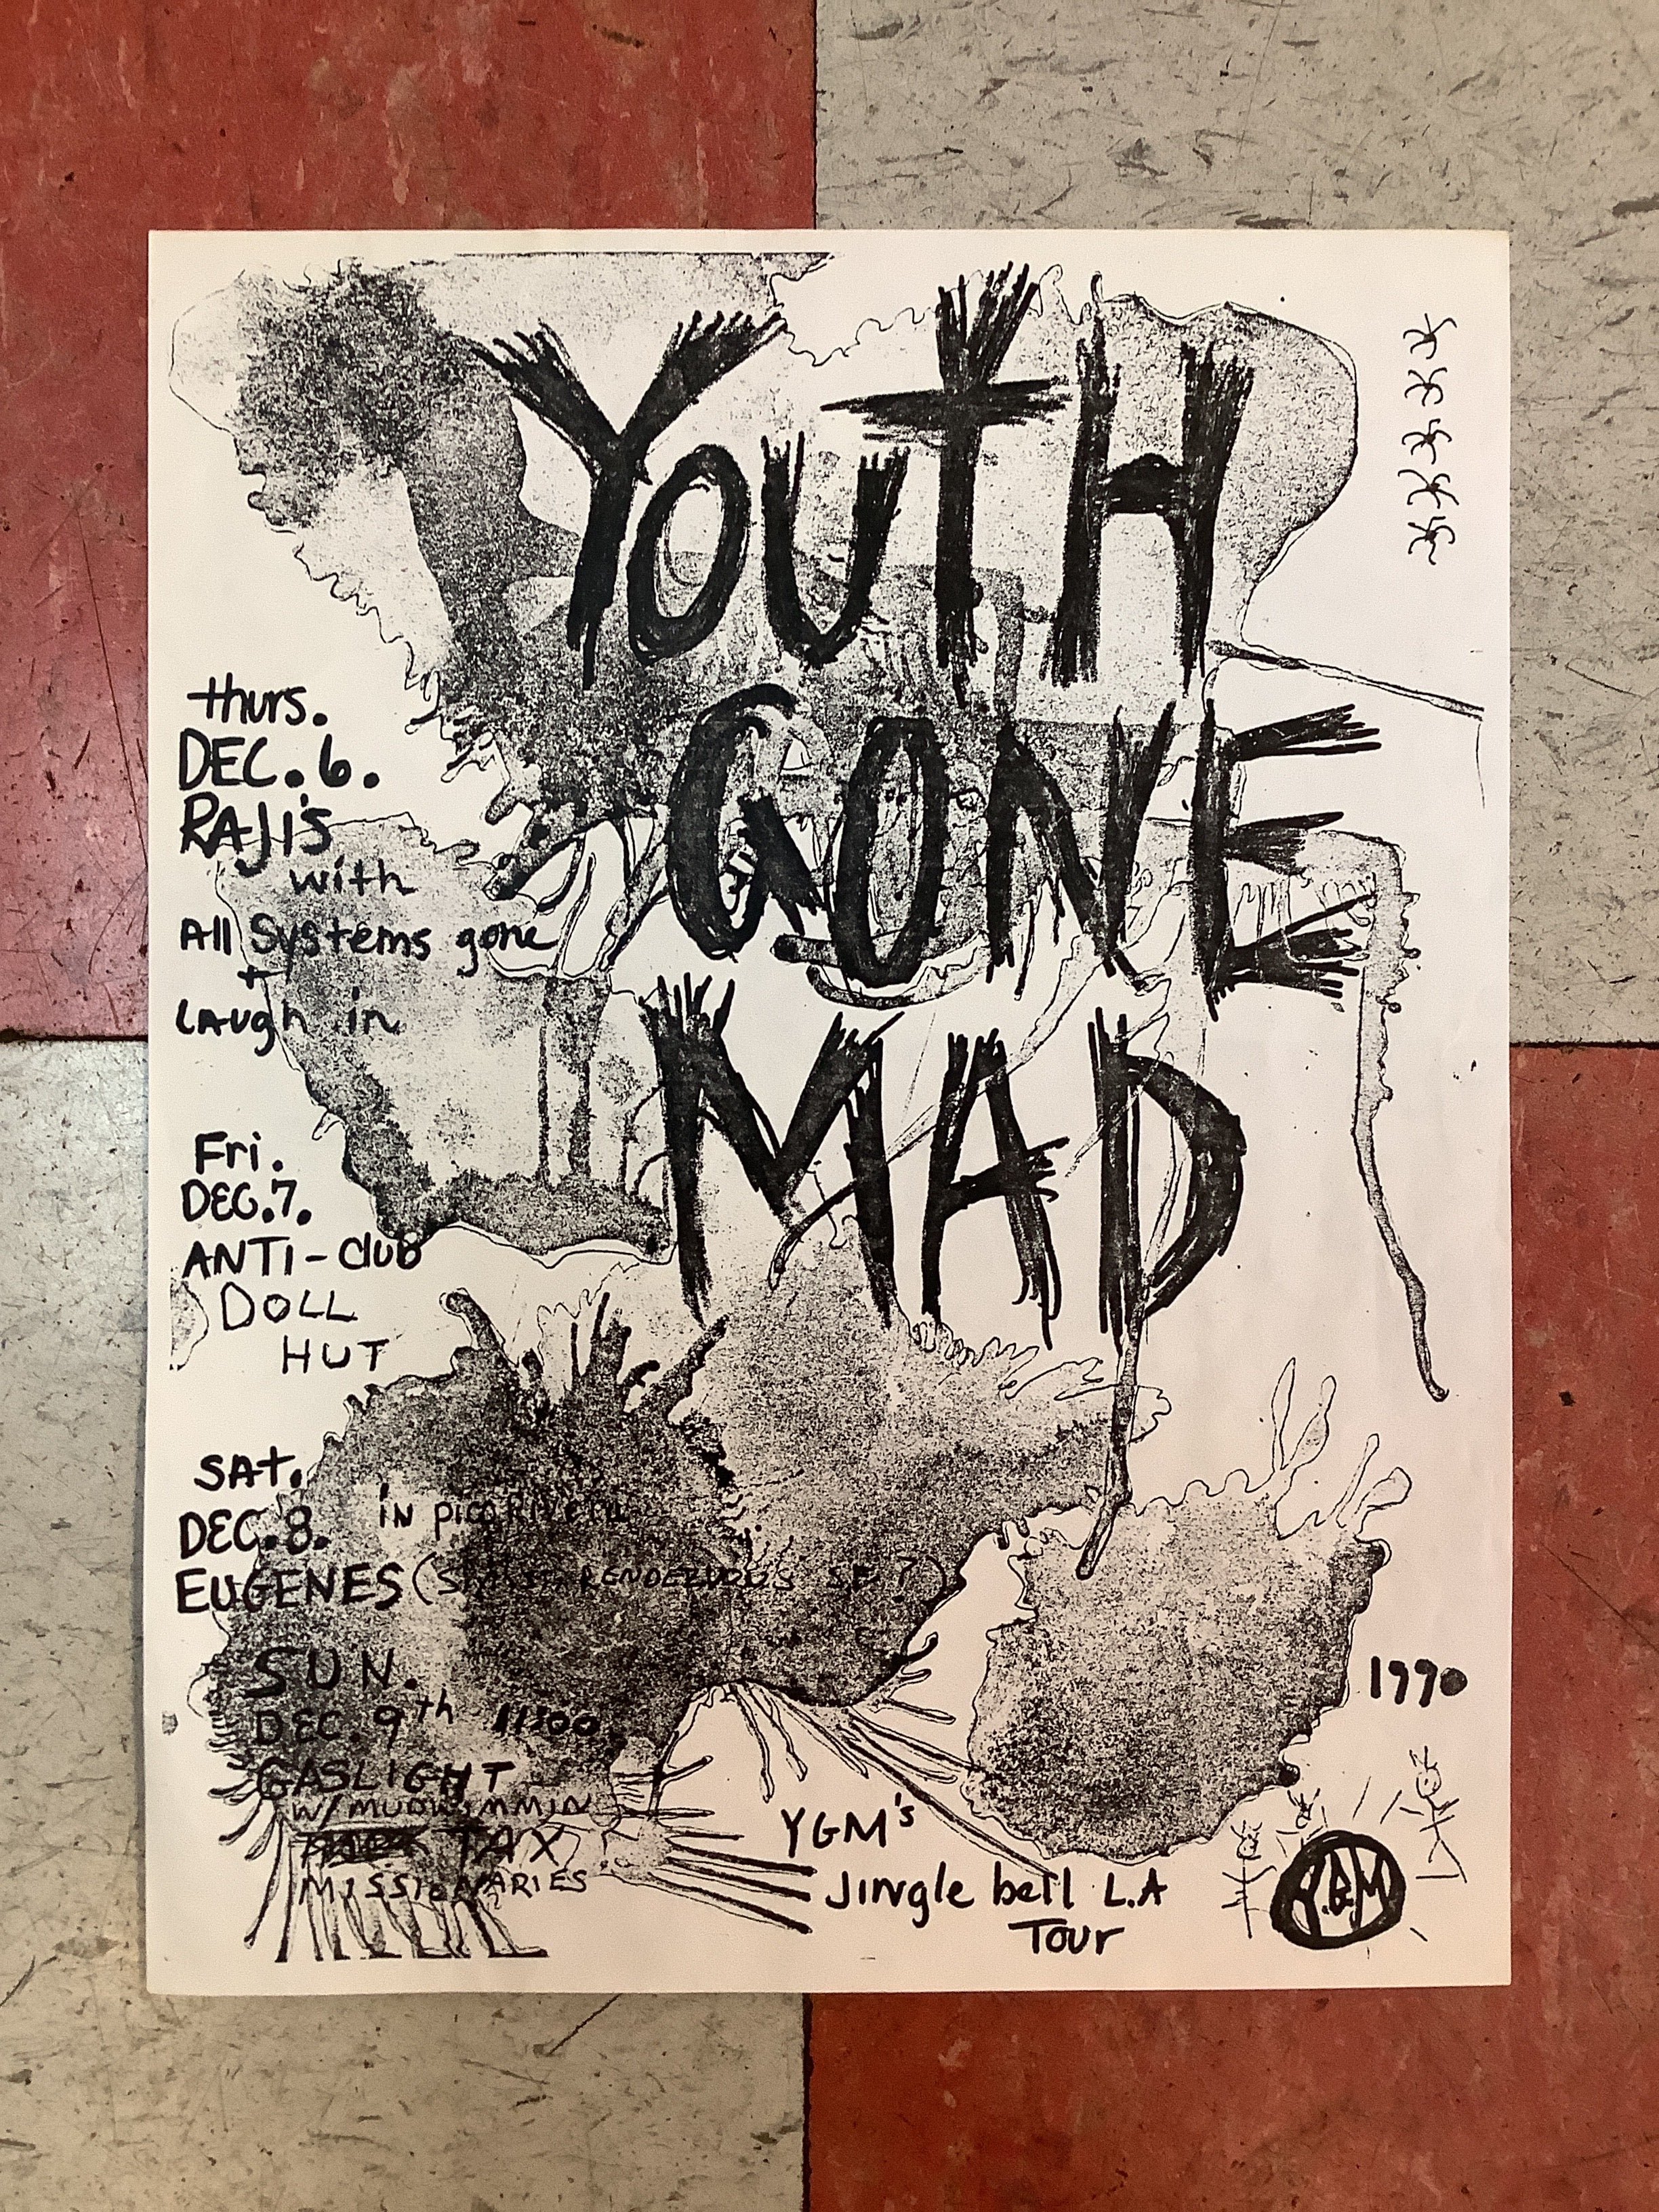 YOUTH
GONE
MAD
thurs.
DEC. 6.
RAJI'S
with
All Systems gone
+
LAUgh in
Fri.
DEC. 7.
ANTI-club
DOLL
HUT
SAT.
DEC. 8. iN pico Rivera
EUGENES ( RENDEZVOUS S.F.?)
SUN.
DEC. 9th 11:00
GASLIGHT
W/ MUDWIMMIN
TAX
MISSIONARIES
1990
YGM's
Jingle bell L.A
Tour
Y.G.M